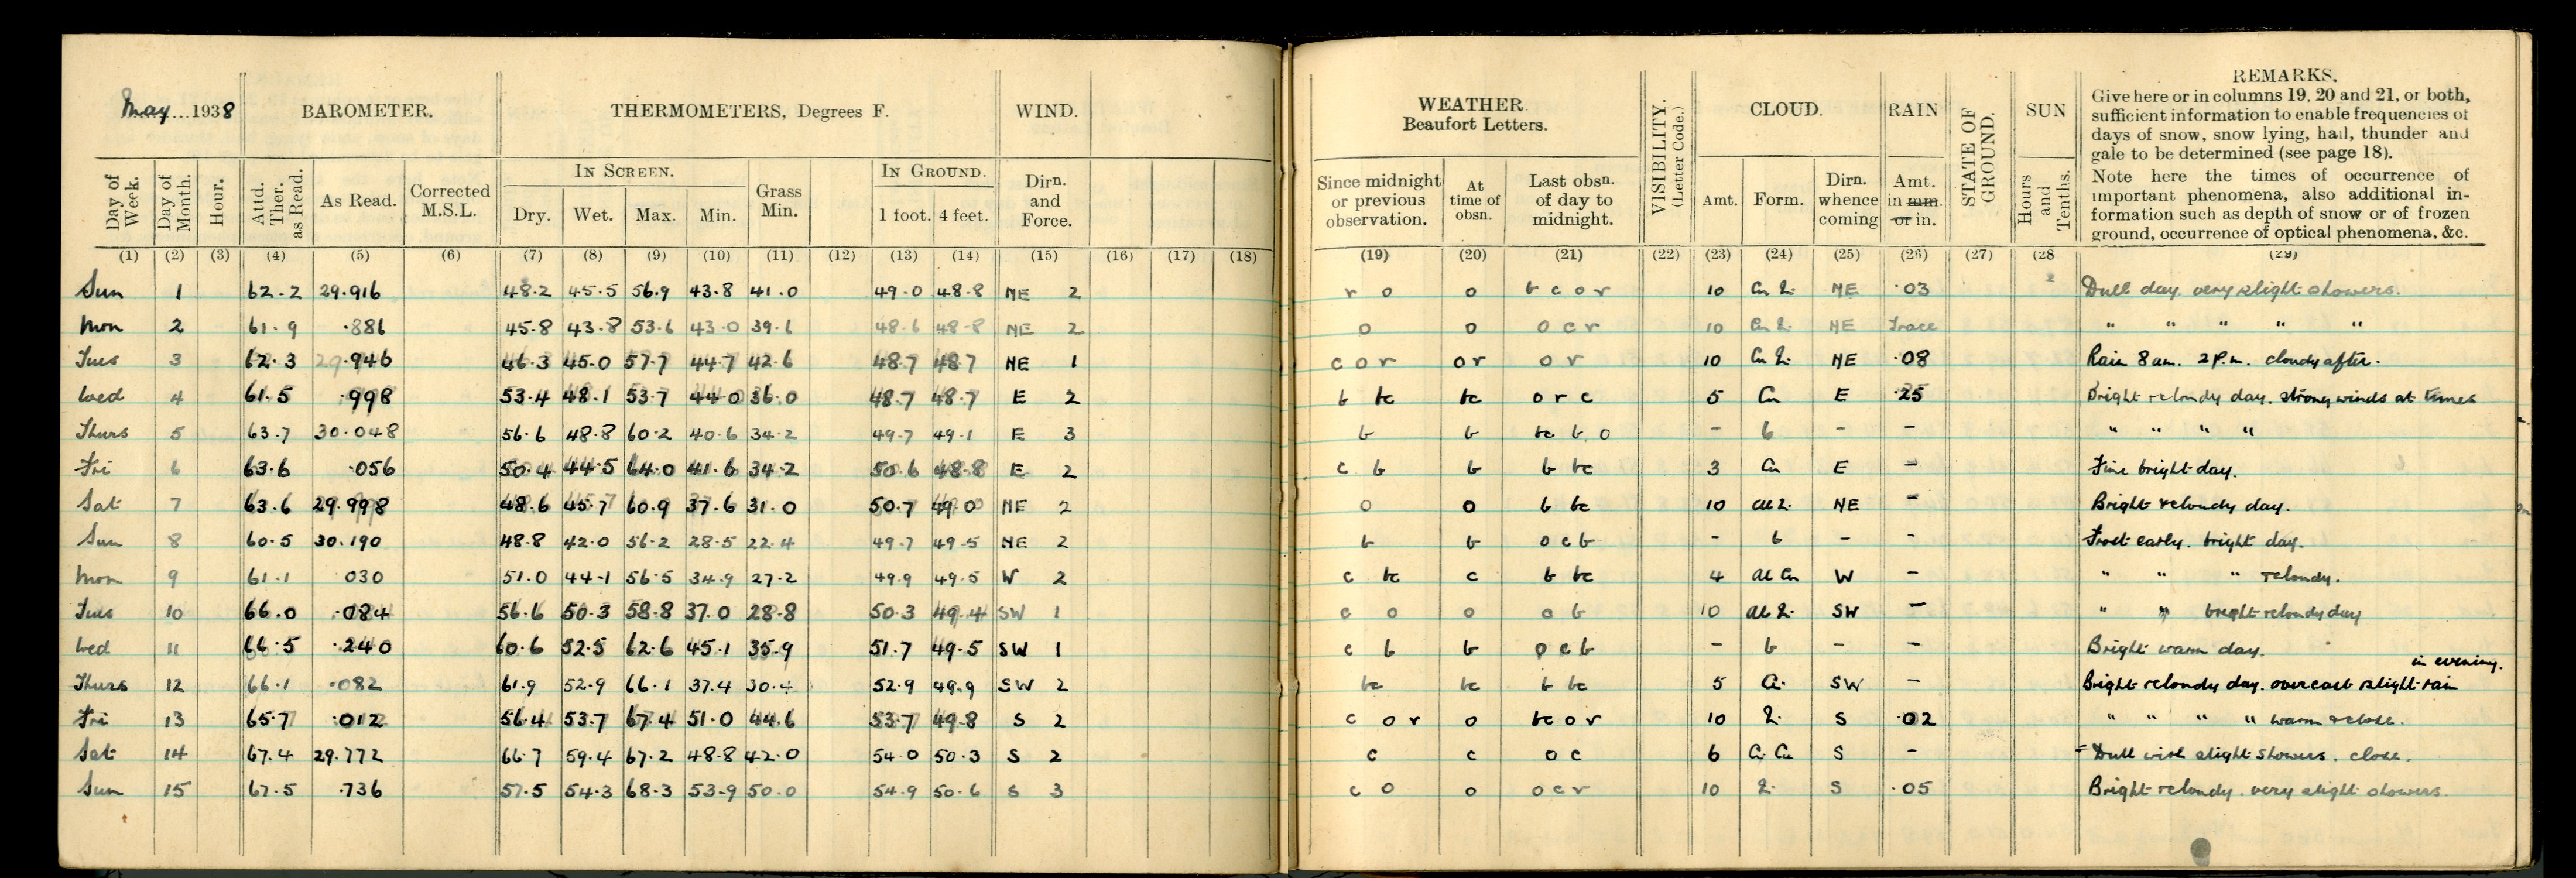 May 1938 BAROMETER. THERMOMETERS, Degrees F. WIND.
IN SCREEN. IN GROUND.
Day of Week. Day of Month. Hour. Attd. Ther. as Read. As Read. Corrected M.S.L. Dry. Wet. Max. Min. Grass Min. 1 foot. 4 feet. Dirn. and Force.
(1) (2) (3) (4) (5) (6) (7) (8) (9) (10) (11) (12) (13) (14) (15) (16) (17) (18)
Sun 1 62.2 29.916 48.2 45.5 56.9 43.8 41.0 49.0 48.8 NE 2
Mon 2 61.9 .886 45.8 43.8 53.6 43.0 39.6 48.6 48.8 NE 2
Tues 3 62.3 29.946 46.3 45.0 57.7 44.7 42.6 48.7 48.7 NE 1
Wed 4 61.5 .998 53.4 48.1 53.7 44.0 36.0 48.7 48.7 E 2
Thurs 5 63.7 30.048 56.6 48.8 60.2 40.6 34.2 49.7 49.1 E 3
Fri 6 63.6 .056 50.4 44.5 64.0 41.6 34.2 50.6 48.8 E 2
Sat 7 63.6 29.998 48.6 45.7 60.9 37.6 31.0 50.7 49.0 NE 2
Sun 8 60.5 30.190 48.8 42.0 56.2 28.5 22.4 49.7 49.5 NE 2
Mon 9 61.1 030 51.0 44.1 56.5 34.9 27.2 49.9 49.5 W 2
Tues 10 66.0 .084 56.6 50.3 58.8 37.0 28.8 50.3 49.4 SW 1
Wed 11 66.5 .240 60.6 52.5 62.6 45.1 35.9 51.7 49.5 SW 1
Thurs 12 66.1 .082 61.9 52.9 66.1 37.4 30.4 52.9 49.9 SW 2
Fri 13 65.7 .012 56.4 53.7 67.4 51.0 44.6 53.7 49.8 S 2
Sat 14 67.4 29.772 66.7 59.4 67.2 48.8 42.0 54.0 50.3 S 2
Sun 15 67.5 .736 57.5 54.3 68.3 53.9 50.0 54.9 50.6 S 3
WEATHER. Beaufort Letters. VISIBILITY. (Letter Code.) CLOUD. RAIN STATE OF GROUND. SUN REMARKS.
Give here or in columns 19, 20 and 21, or both,
sufficient information to enable frequencies of
days of snow, snow lying, hail, thunder and
gale to be determined (see page 18).
Note here the times of occurrence of
important phenomena, also additional in-
formation such as depth of snow or of frozen
ground, occurrence of optical phenomena, &c.
Since midnight or previous observation. At time of obsn. Last obsn. of day to midnight. Amt. Form. Dirn. whence coming Amt. in mm. or in. Hours and Tenths.
(19) (20) (21) (22) (23) (24) (25) (26) (27) (28 (29)
r o o b c o r 10 NE .03 Dull day. very slight showers.
o o o c r 10 NE Trace " " " " "
c o r o r o r 10 NE .08 Rain 8 am. 2 P.m. cloudy after.
b bc bc o r c 5 Cu E .25 Bright & cloudy day. strong winds at times
b b bc b o - b - - " " " "
c b b b bc 3 Cu E - Fine bright day.
o o b bc 10 NE - Bright & cloudy day.
b b o c b - b - - Frost early. bright day.
c bc c b bc 4 Al Cu W - " " " & cloudy.
c o o o b 10 SW - " " bright & cloudy day
c b b o c b - b - - Bright warm day.
bc bc b bc 5 Ci. SW - Bright & cloudy day. overcast & slight rain in evening.
c o r o bc o r 10 S .02 " " " " warm & close.
c c o c 6 Ci Cu S - Dull with slight showers. close.
c o o o c r 10 S .05 Bright & cloudy. very slight showers.